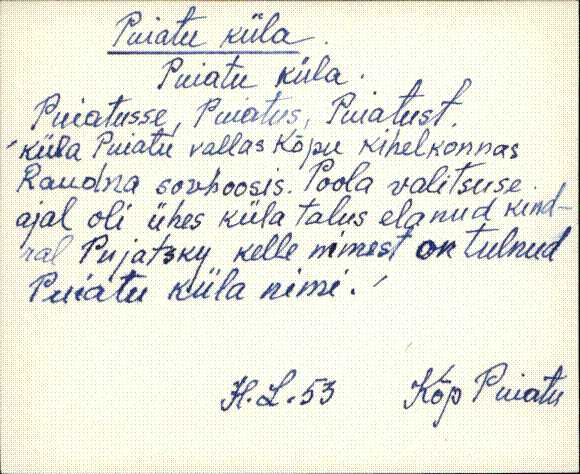 Puiatu küla.
Puiatu küla.
Puiatusse, Puiatus, Puiatust.
küla Puiatu vallas Kõpu kihelkonnas
Raudna sovhoosis. Poola valitsuse
ajal oli ühes küla talus elanud kind-
ral Pujatsky kelle nimest on tulnud
Puiatu küla nimi.
H. L. 53 Kõp Puiatu